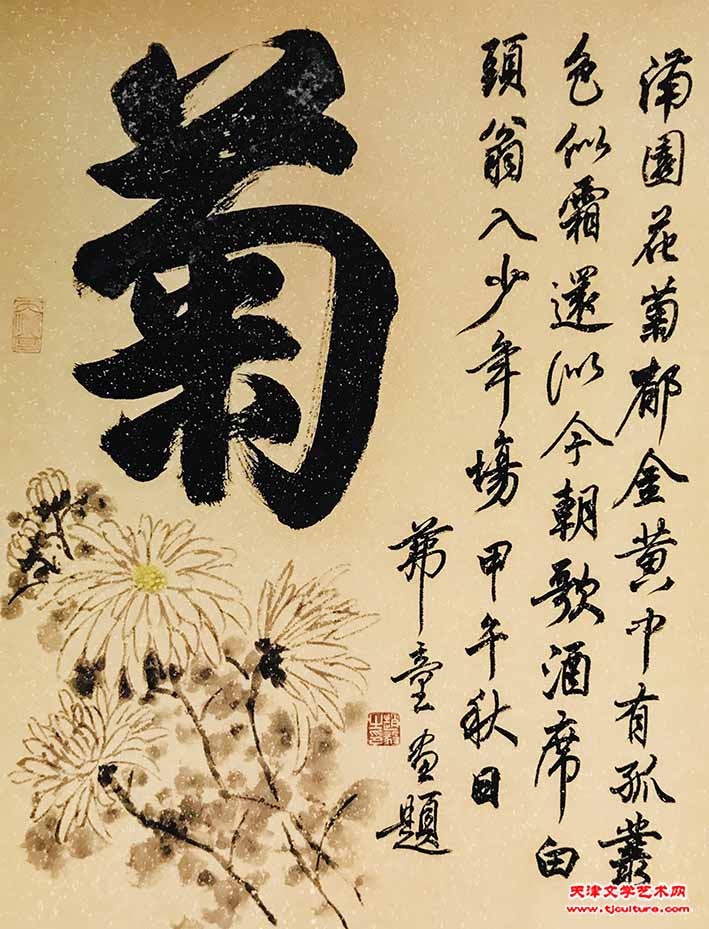 菊
满園花菊郁金黄中有孤叢
色似霜還似今朝歌酒席白
頭翁入少年場甲午秋日
童畫題
天津文学艺术网
www.tjculture.com